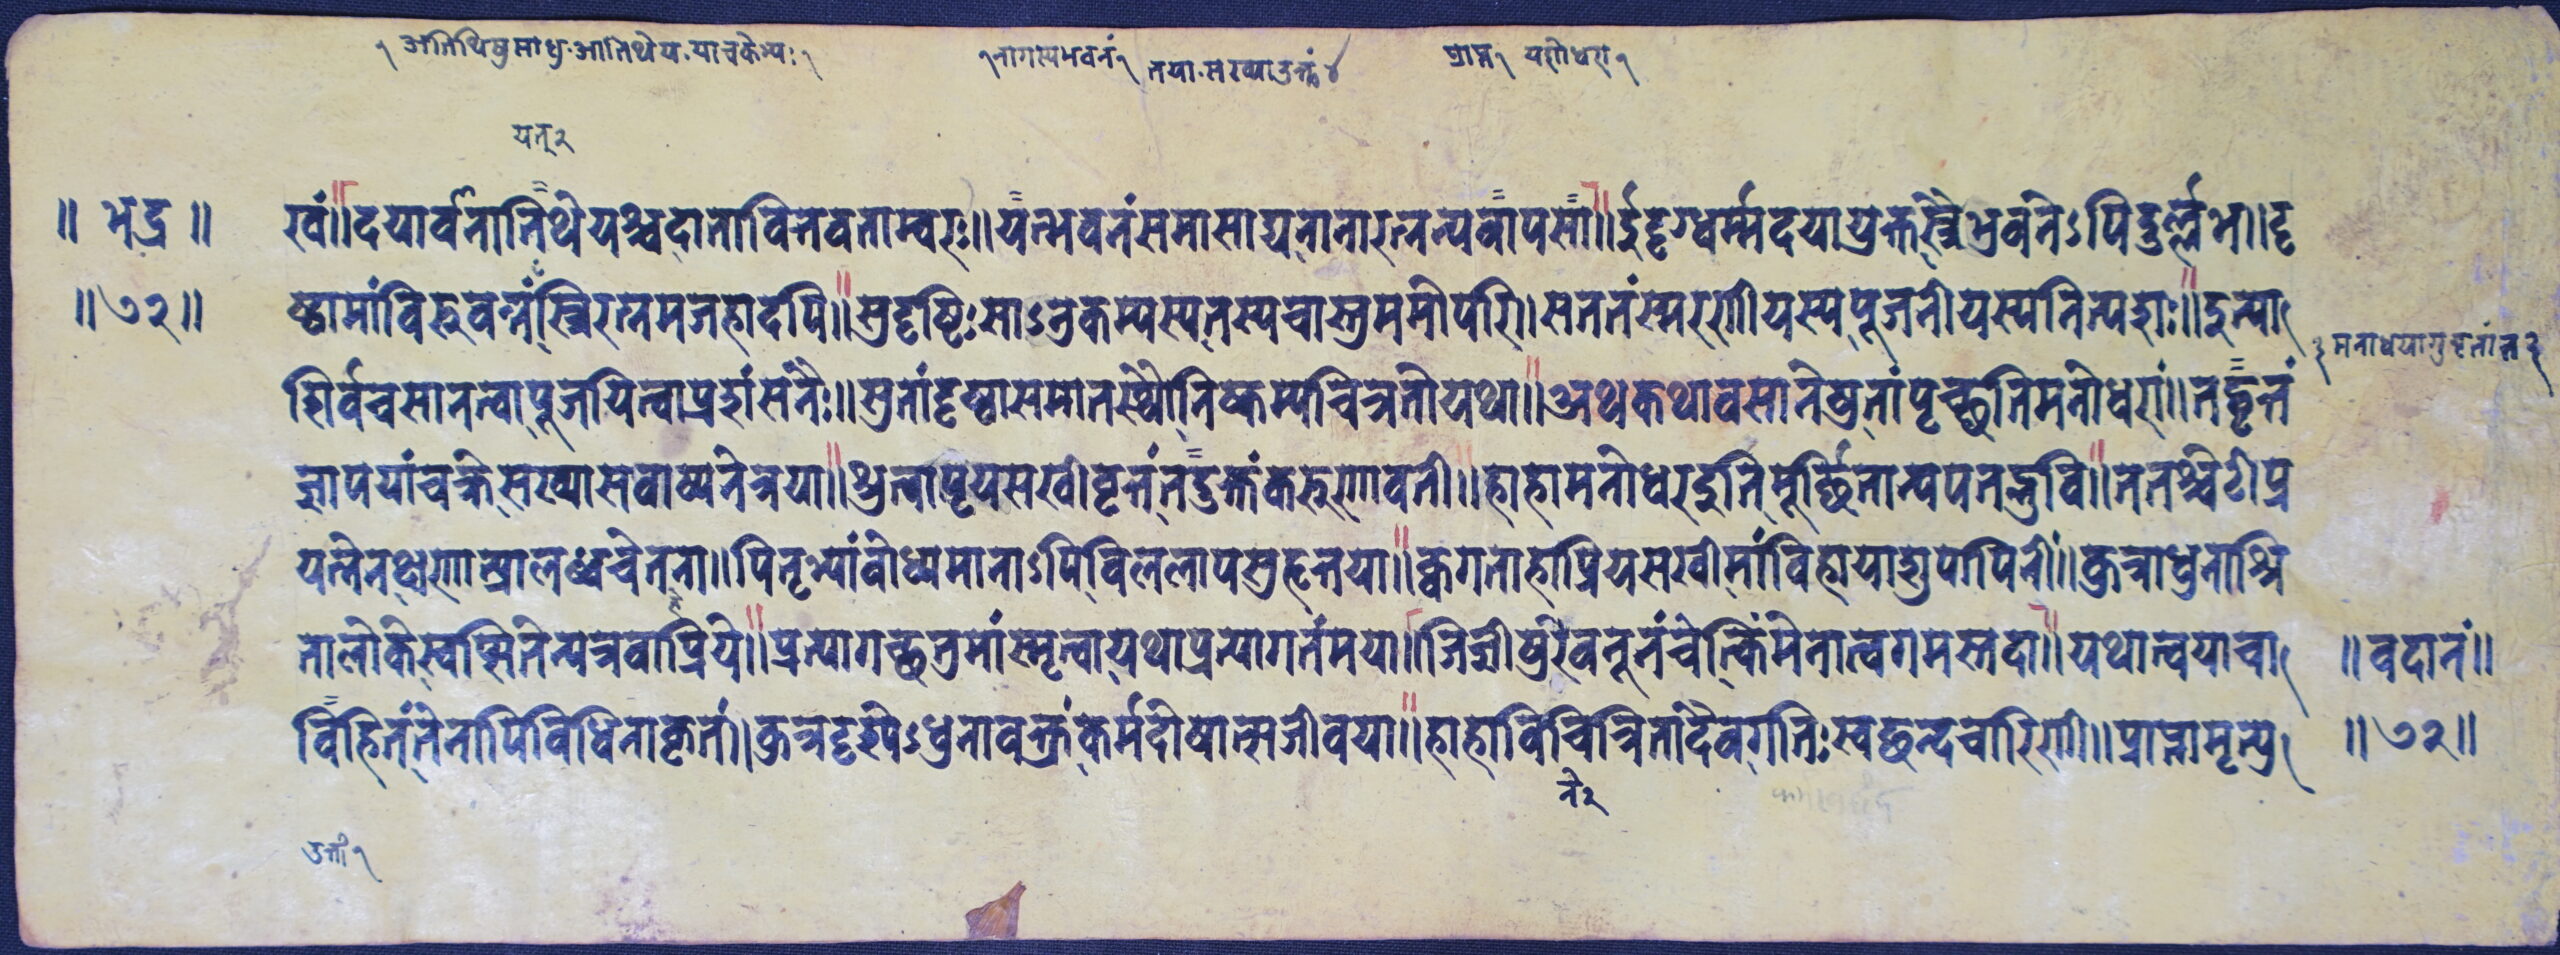 अतिथिषुसाधु·आतिथेय·याचकेभ्यः१
१नागस्यभवनं१
तया·सख्याउक्तं४
प्राप्त१
यशोधरा१
यत्२
॥ भद्र ॥
खं॥दयार्वनातिथेयश्चदानाविनवताम्बरः॥यन्भवनंसमासाद्यनानारत्नन्यवापसो॥ईदृग्धर्म्मदयायुक्तस्त्रैभुवनेऽपिदुर्ल्लभ॥दृ
॥७२॥
ष्ठामांविह्रुवन्नंस्त्रिरत्नमजहादपि॥सुदृष्टिःसाऽनुकम्पस्यतस्यचास्तुममोपरि।सततंस्मरणीयस्यपूजनीयस्यनित्यशः॥इत्या
३मनोधयागुवृत्तांत२
शिर्वचसानत्वापूजयित्वाप्रशंसंतैः॥सुतांदृष्ठासमानस्थौनिष्कम्पचित्रतोयथा॥अथकथावसानेषुतांपृच्छतिमनोधरां॥तद्वृत्तं
ज्ञापयांचक्रेसख्यासवाष्पनेत्रया॥श्रुत्वापृयसखीवृत्तंतदुक्तंकरुणावती॥हाहामनोधरइतिमूर्छितान्यपतद्भुवि॥ततश्चेटीप्र
यत्नेनक्षणात्प्रालब्धचेतना॥पितृभ्यांवोध्यमानाऽपिविललापसुहृत्तया॥क्वगताहाप्रियसखीमांविहायाशुपापिनीं॥कुत्राधुनाश्रि
तालोकेस्वप्नितेन्यत्रवाप्रिये॥प्रत्यागच्छतुमांस्मृत्वायथाप्रत्यागतंमया॥जिज्ञीषुरेवनूनंचेत्किंमेनात्वगमस्तदा॥यथात्वयाचा
॥वदानं॥
विहितंतेनापिविधिनाकृतं॥कुत्रदृश्येऽधुनावक्त्रंकर्मदोषात्मजीवया॥हाहाविचित्रितादैवगतिःस्वछन्दचारिणी॥प्राप्तामृत्यु
॥७२॥
तै२